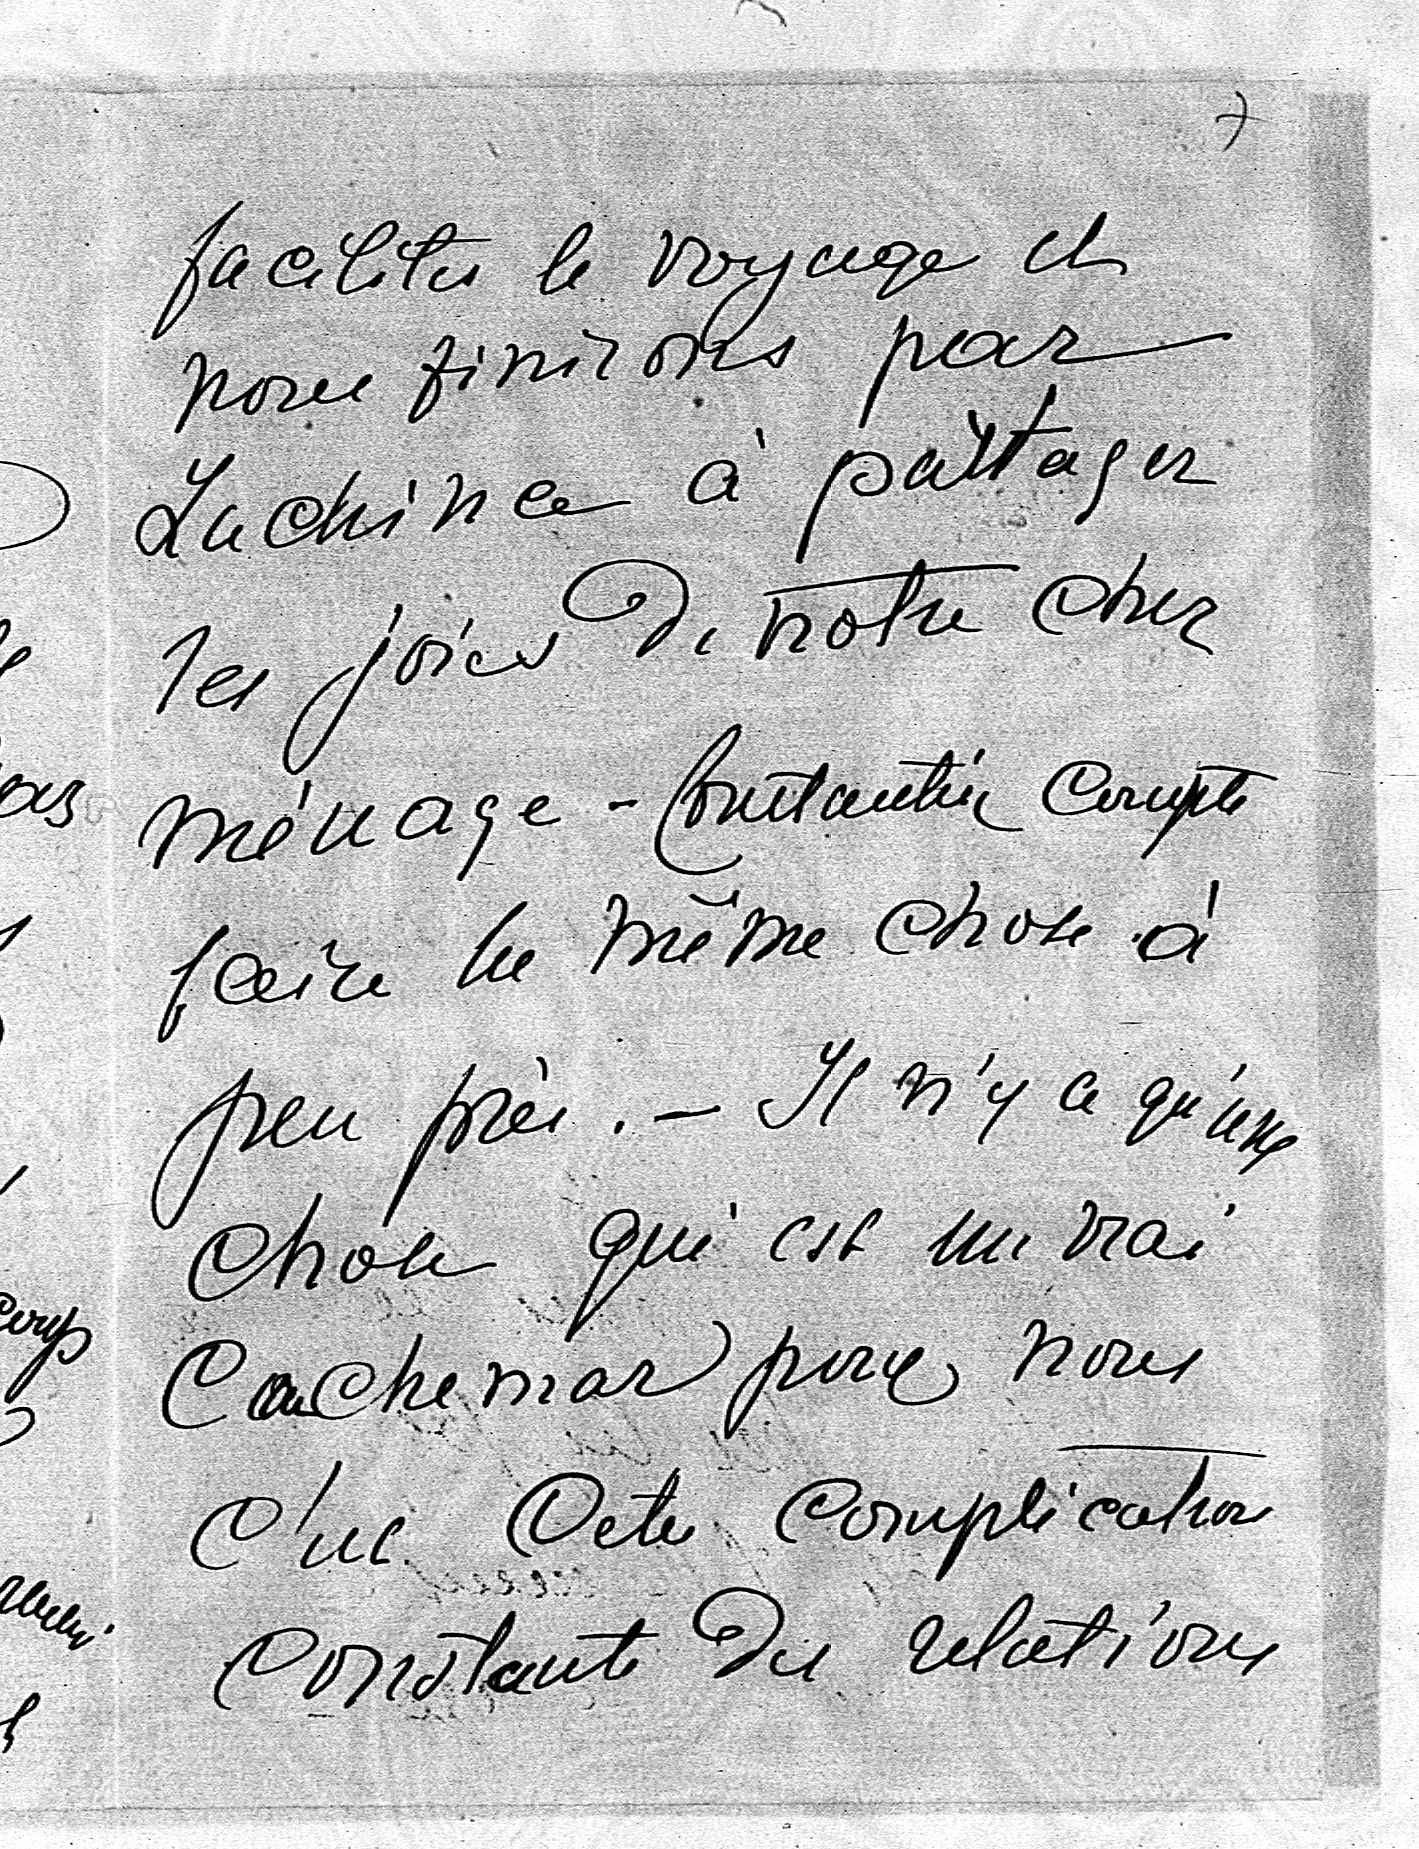 7
faciliter le voyage et
nous finirons par
Luchina à partager
les joies de notre cher
ménage - Constantin compte
faire la même chose à
peu près. - Il n'y a qu'une
chose qui est un vrai
cauchemar pour nous
c'est cette complication
constante des relations